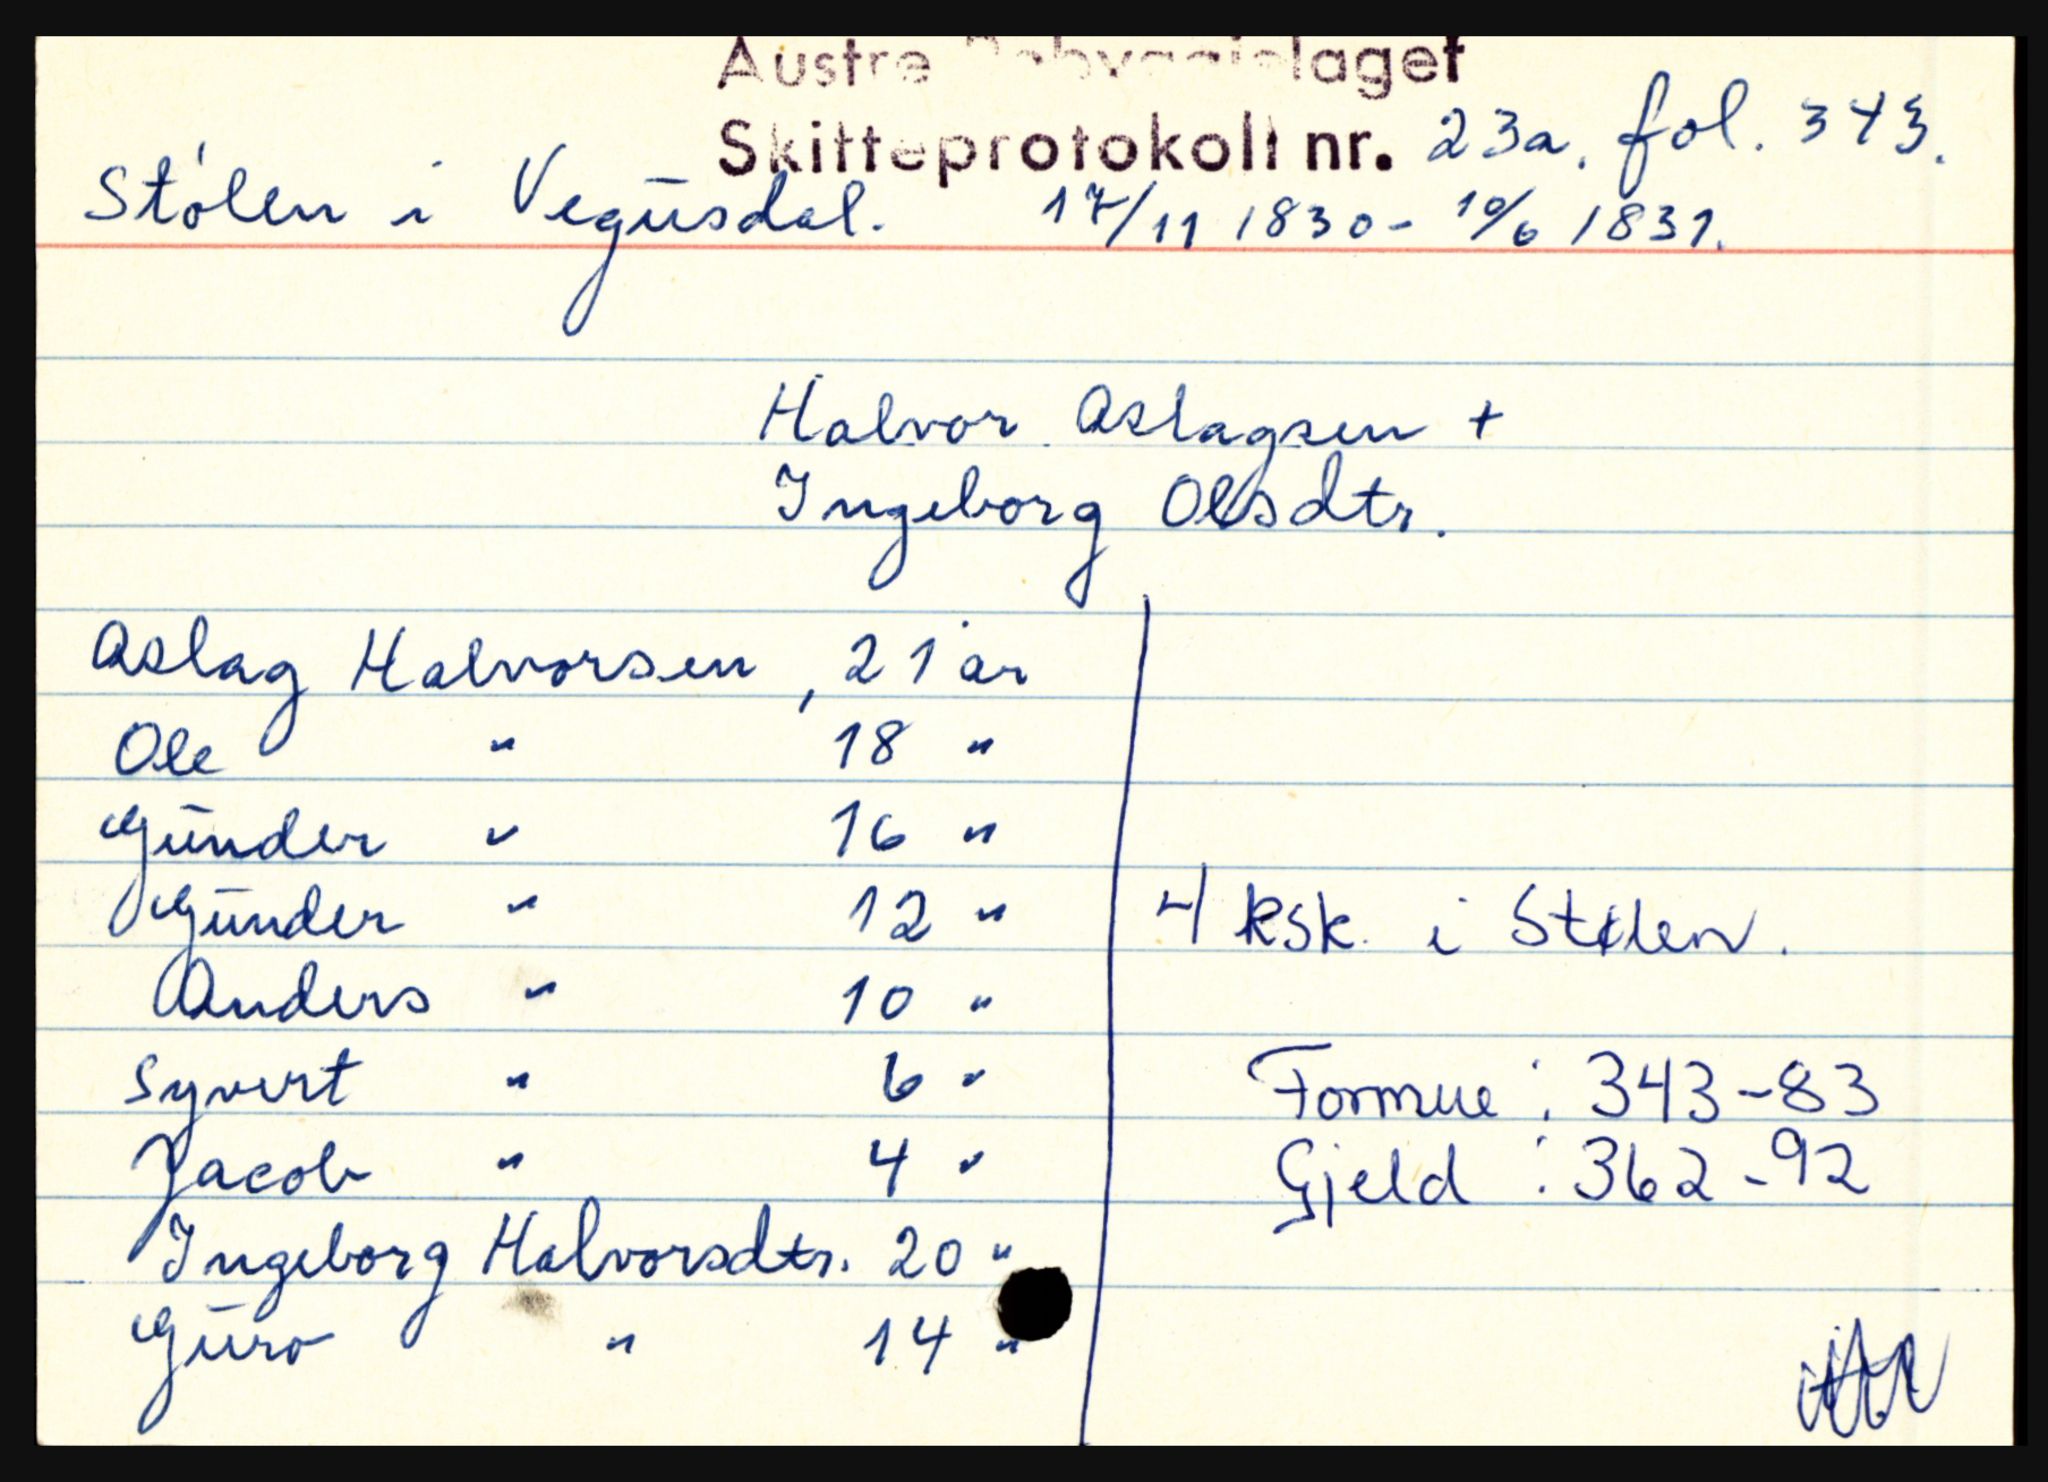 Austre laget
Skifteprotokoll nr. 23a, fol. 343.
Stølen i Vegusdal. 17/11 1830 - 10/6 1831.
Halvor Aslagsen +
Ingeborg Olsdtr.
Aslag Halvorsen, 21 år
Ole " 18 "
Gunder " 16 "
Gunder " 12 "
4 ksk. i Stølen.
Anders " 10 "
Syvert " 6 "
Formue : 343-83
Jacob " 4 "
Gjeld : 362-92
Ingeborg Halvorsdtr. 20 "
Guro " 14 "